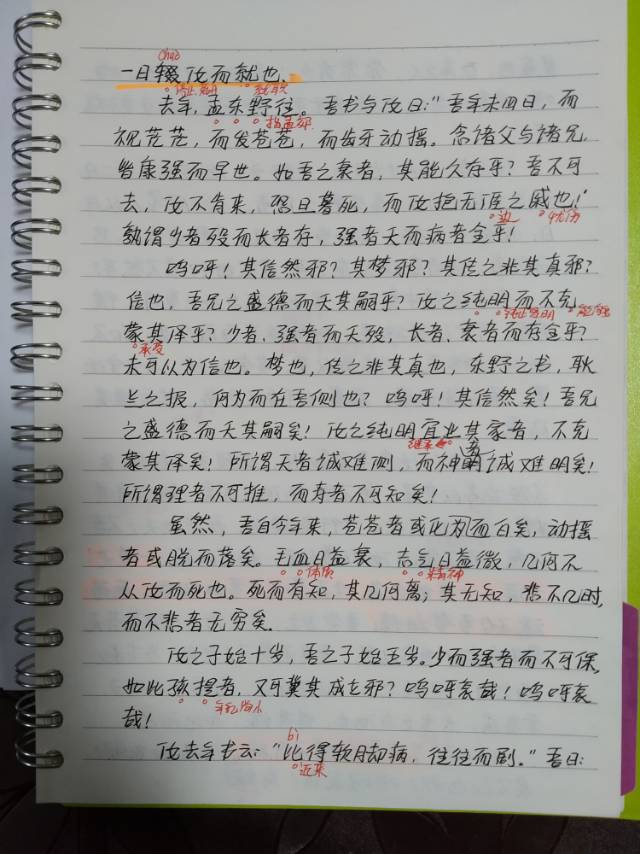 chuò
一日辍汝而就也.
停止,离开 就职
去年,孟东野往。吾书与汝曰:"吾年未四十,而
指孟郊
视茫茫,而发苍苍,而齿牙动摇。念诸父与诸兄,
皆康强而早世。如吾之衰者,其能久存乎?吾不可
去,汝不肯来,恐旦暮死,而汝抱无涯之戚也!"
边 忧伤
孰谓少者殁而长者存,强者夭而病者全乎!
呜呼!其信然邪?其梦邪?其传之非其真邪?
信也,吾兄之盛德而夭其嗣乎?汝之纯明而不克
纯正贤明 能够
蒙其泽乎?少者、强者而夭殁,长者、衰者而存全乎?
承受
未可以为信也。梦也,传之非其真也,东野之书,耿
兰之报,何为而在吾侧也?呜呼!其信然矣!吾兄
之盛德而夭其嗣矣!汝之纯明宜业其家者,不克
继承
蒙其泽矣!所谓天者诚难测,而神者诚难明矣!
所谓理者不可推,而寿者不可知矣!
虽然,吾自今年来,苍苍者或化为而白矣,动摇
者或脱而落矣。毛血日益衰,志气日益微,几何不
体质 精神
从汝而死也。死而有知,其几何离;其无知,悲不几时,
而不悲者无穷矣.
汝之子始十岁,吾之子始五岁。少而强者而不可保,
如此孩提者,又可冀其成立邪?呜呼哀哉!呜呼哀
年纪幼小
哉!
bǐ
汝去年书云:"比得软脚病,往往而剧。"吾曰:
近来